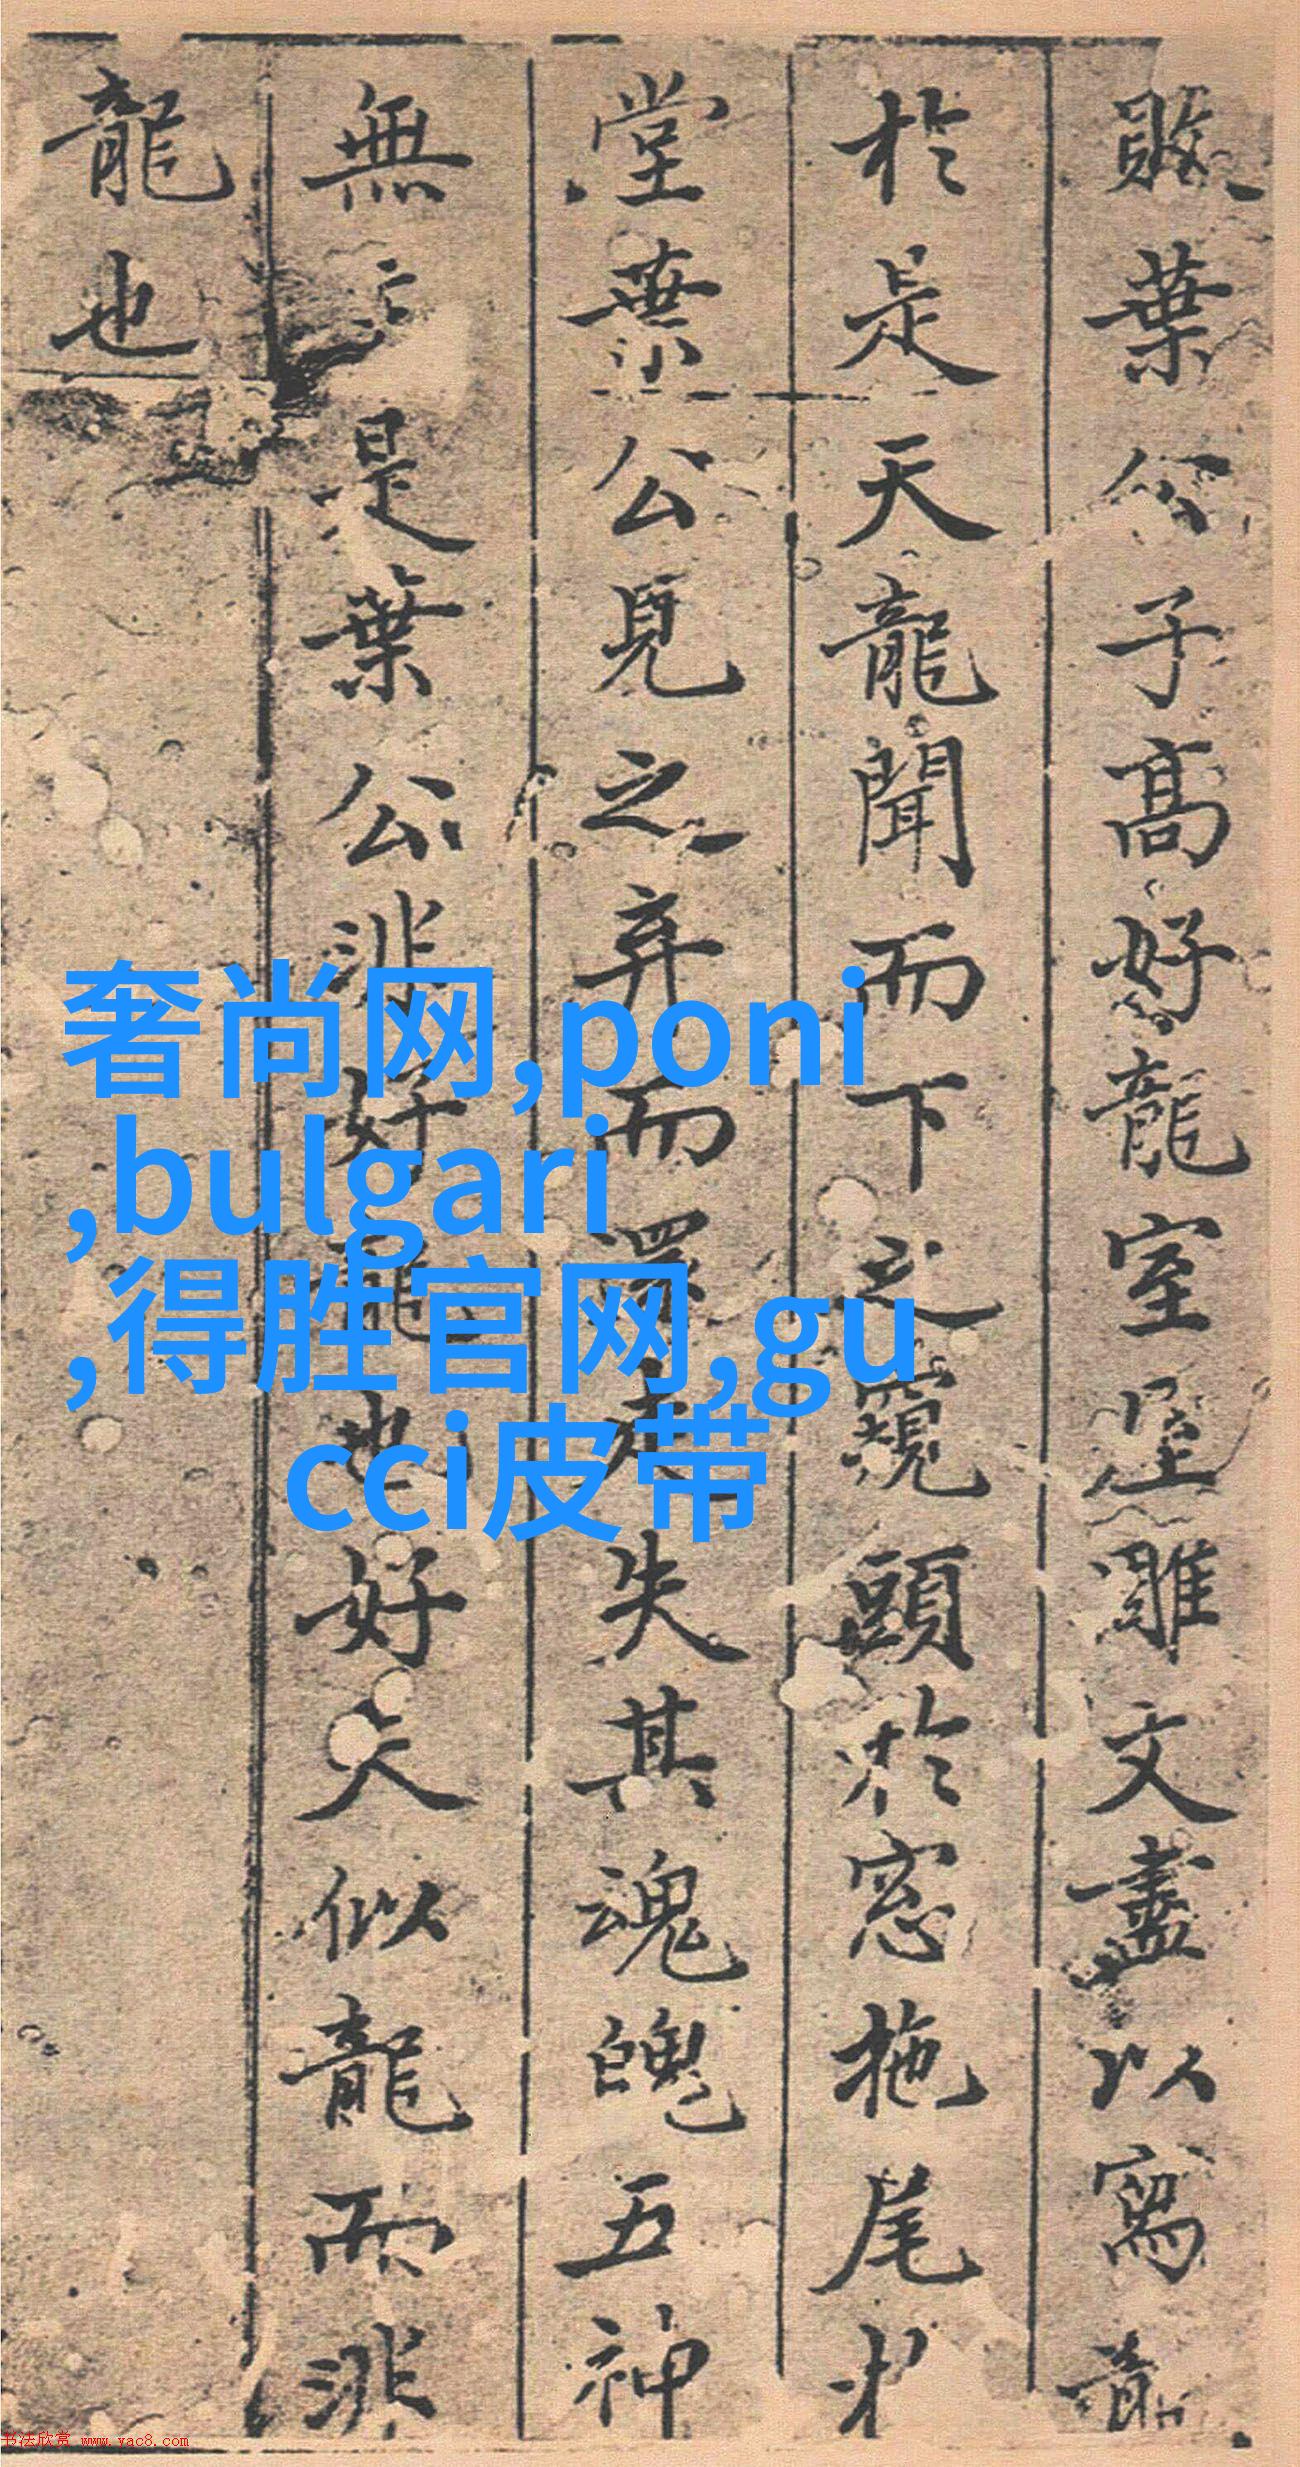 葉公子高好龍室雕文盡以寫龍
於是天龍聞而下之窺頭於窓拖尾
堂葉公見之弃而還走失其魂魄五神
無主是葉公非好龍也好夫似龍而非
龍也
奢尚网,poni
,bulgari
,得胜官网,gu
cci皮带
书法欣赏 www.yac8.com